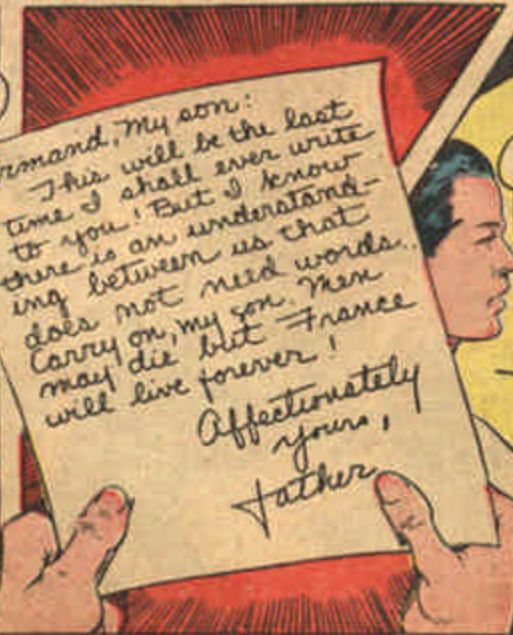 rmand, my son:
This will be the last
time I shall ever write
to you! But I know
there is an understand-
ing between us that
does not need words..
Carry on, my son. Men
may die but France
will live forever!
Affectionately
yours,
Father